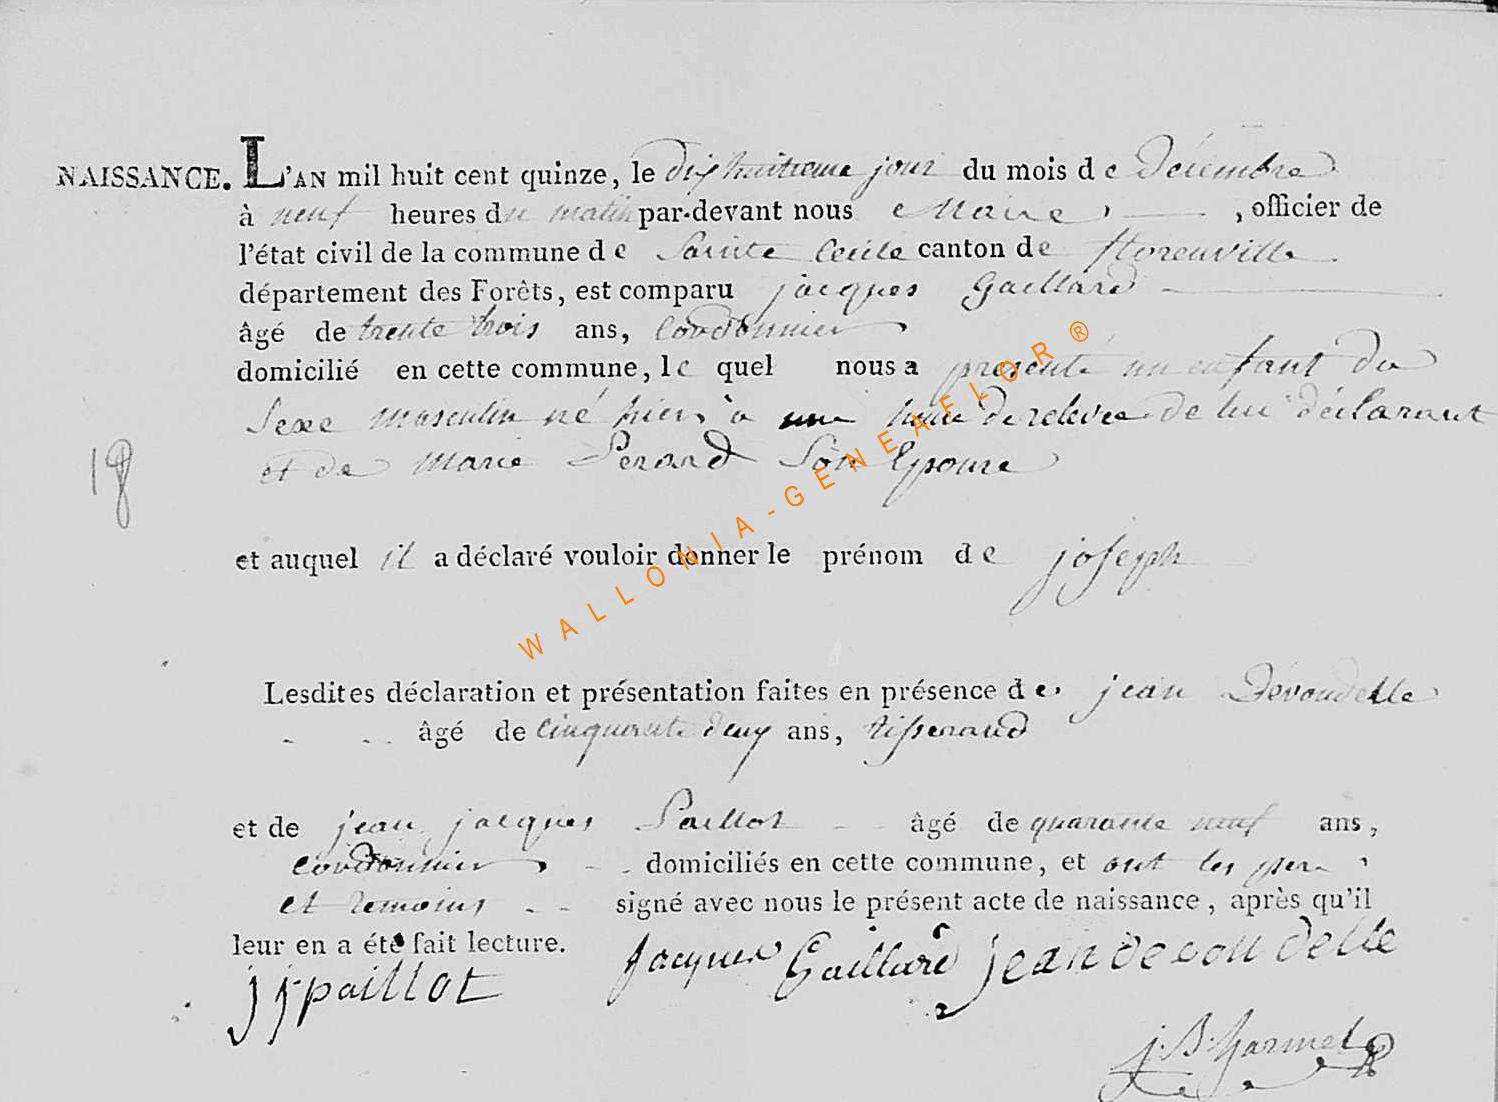 NAISSANCE. L'AN mil huit cent quinze, le dixhuitieme jour du mois de Décembre
à neuf heures du matin par-devant nous Maire, officier de
l'état civil de la commune de Sainte Cecile canton de florenville
département des Forêts, est comparu jacques Gaillard
âgé de trente trois ans, Cordonnier
domicilié en cette commune, le quel nous a presenté un enfant du
Sexe masculin né hier à une heure de relevée de lui déclarant
et de Marie Perard Son Epouse
18
et auquel il a déclaré vouloir donner le prénom de joseph
Lesdites déclaration et présentation faites en présence de jean
âgé de cinquante deux ans, tisserand
et de jean jacques Paillot âgé de quarante neuf ans,
Cordonnier domiciliés en cette commune, et ont les pere
et temoins signé avec nous le présent acte de naissance, après qu'il
leur en a été fait lecture.
jjpaillot Jacques Gaillard jean
WALLONIA-GENEAFLOR ®